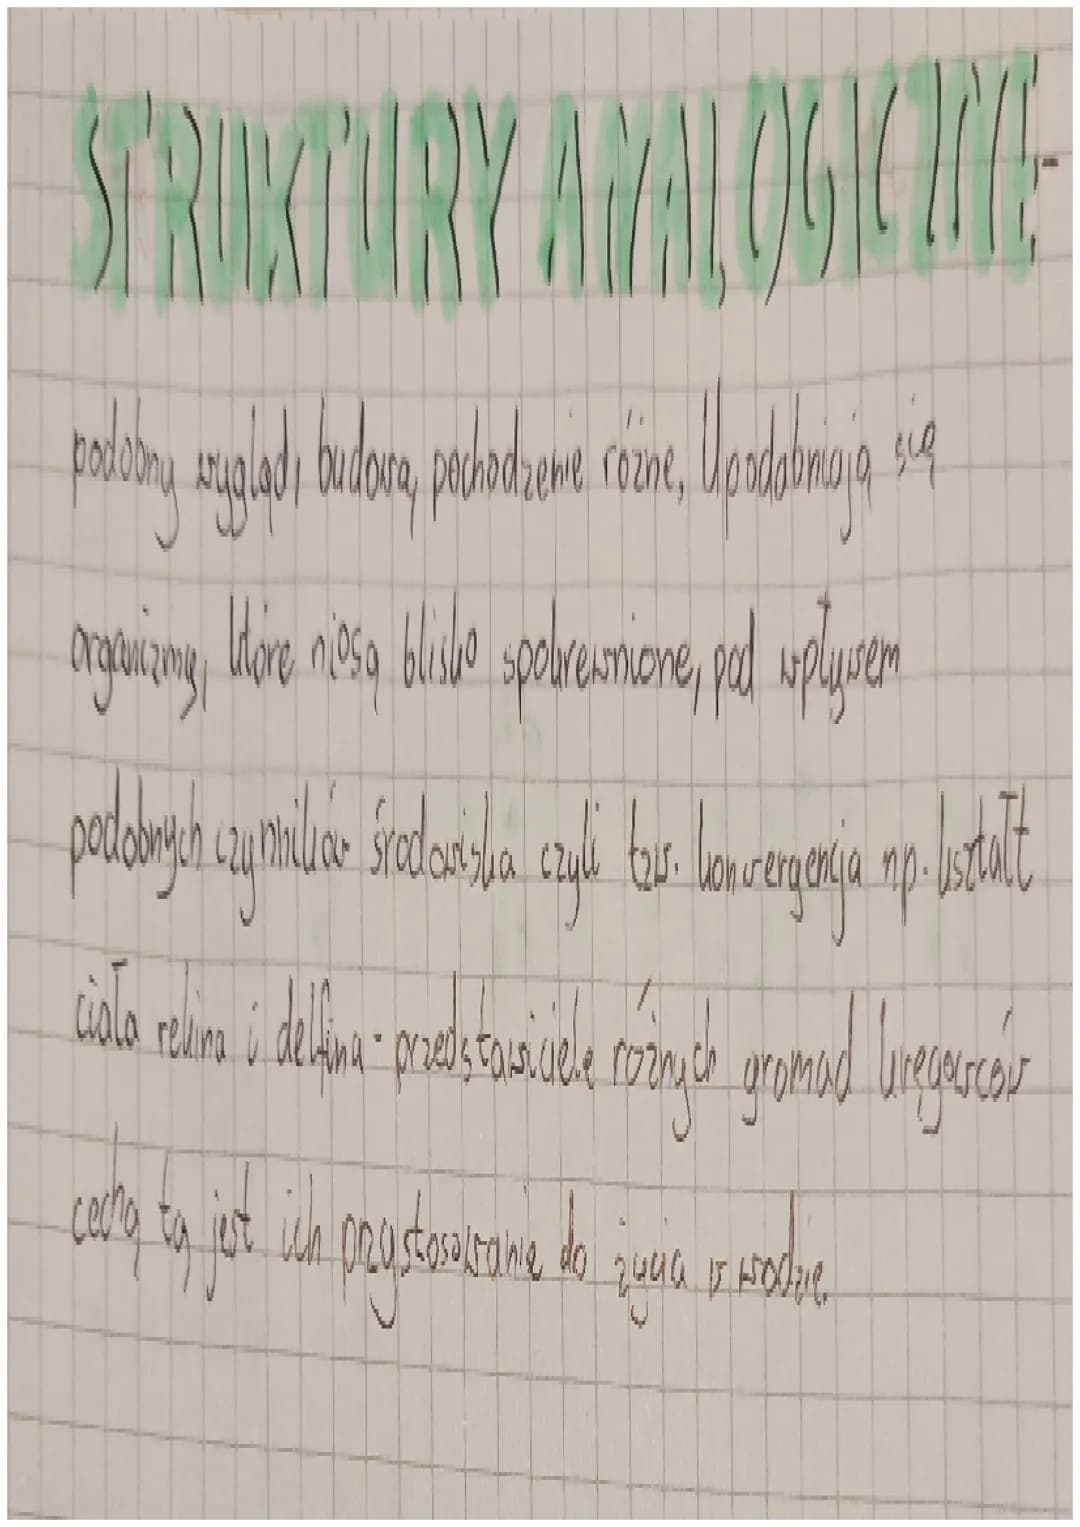 STRUKTURY ANALOGICZNE-
podobny wygląd, budowa, pochodzenie różne, Upodabniają się
organizmy, które nie są blisko spokrewnione, pod wpływem
podobnych czynników środowiska czyli tzw. konwergencja np. kształt
ciała rekina i delfina - przedstawiciele różnych gromad kręgowców
cechą tą jest ich przystosowanie do życia w wodzie.